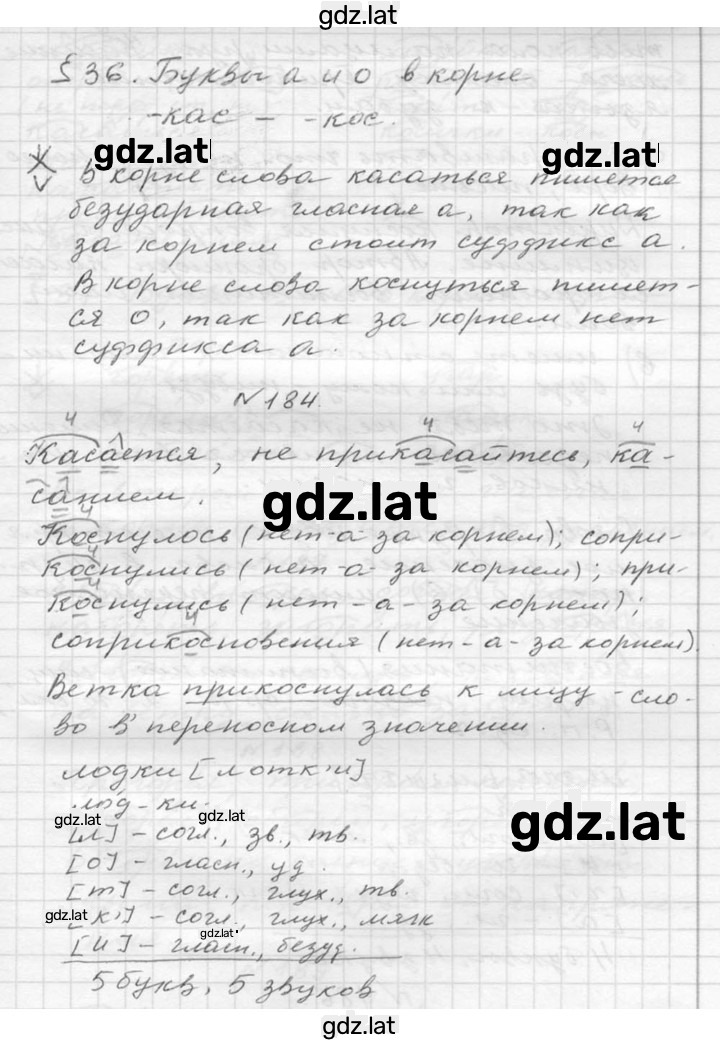 gdz.lat
§ 36. Буквы а и о в корне
-кас - -кос.
gdz.lat gdz.lat
В корне слова касаться пишется
безударная гласная а, так как
за корнем стоит суффикс а.
В корне слова коснуться пишет-
ся о, так как за корнем нет
суффикса а.
№ 184.
4 4 4
Касается, не прикасайтесь, ка-
санием.
gdz.lat
4
Коснулось (нет -а- за корнем); сопри-
4
коснулись (нет -а- за корнем); при-
4
коснулись (нет -а- за корнем);
4
соприкосновения (нет -а- за корнем).
Ветка прикоснулась к лицу - сло-
во в переносном значении.
лодки [лотк'и]
лод-ки.
gdz.lat
gdz.lat
[л] - согл., зв., тв.
[о] - гласн., уд.
[т] - согл., глух., тв.
gdz.lat
[к'] - согл., глух., мягк
gdz.lat
[и] - гласн., безуд.
5 букв, 5 звуков
gdz.lat